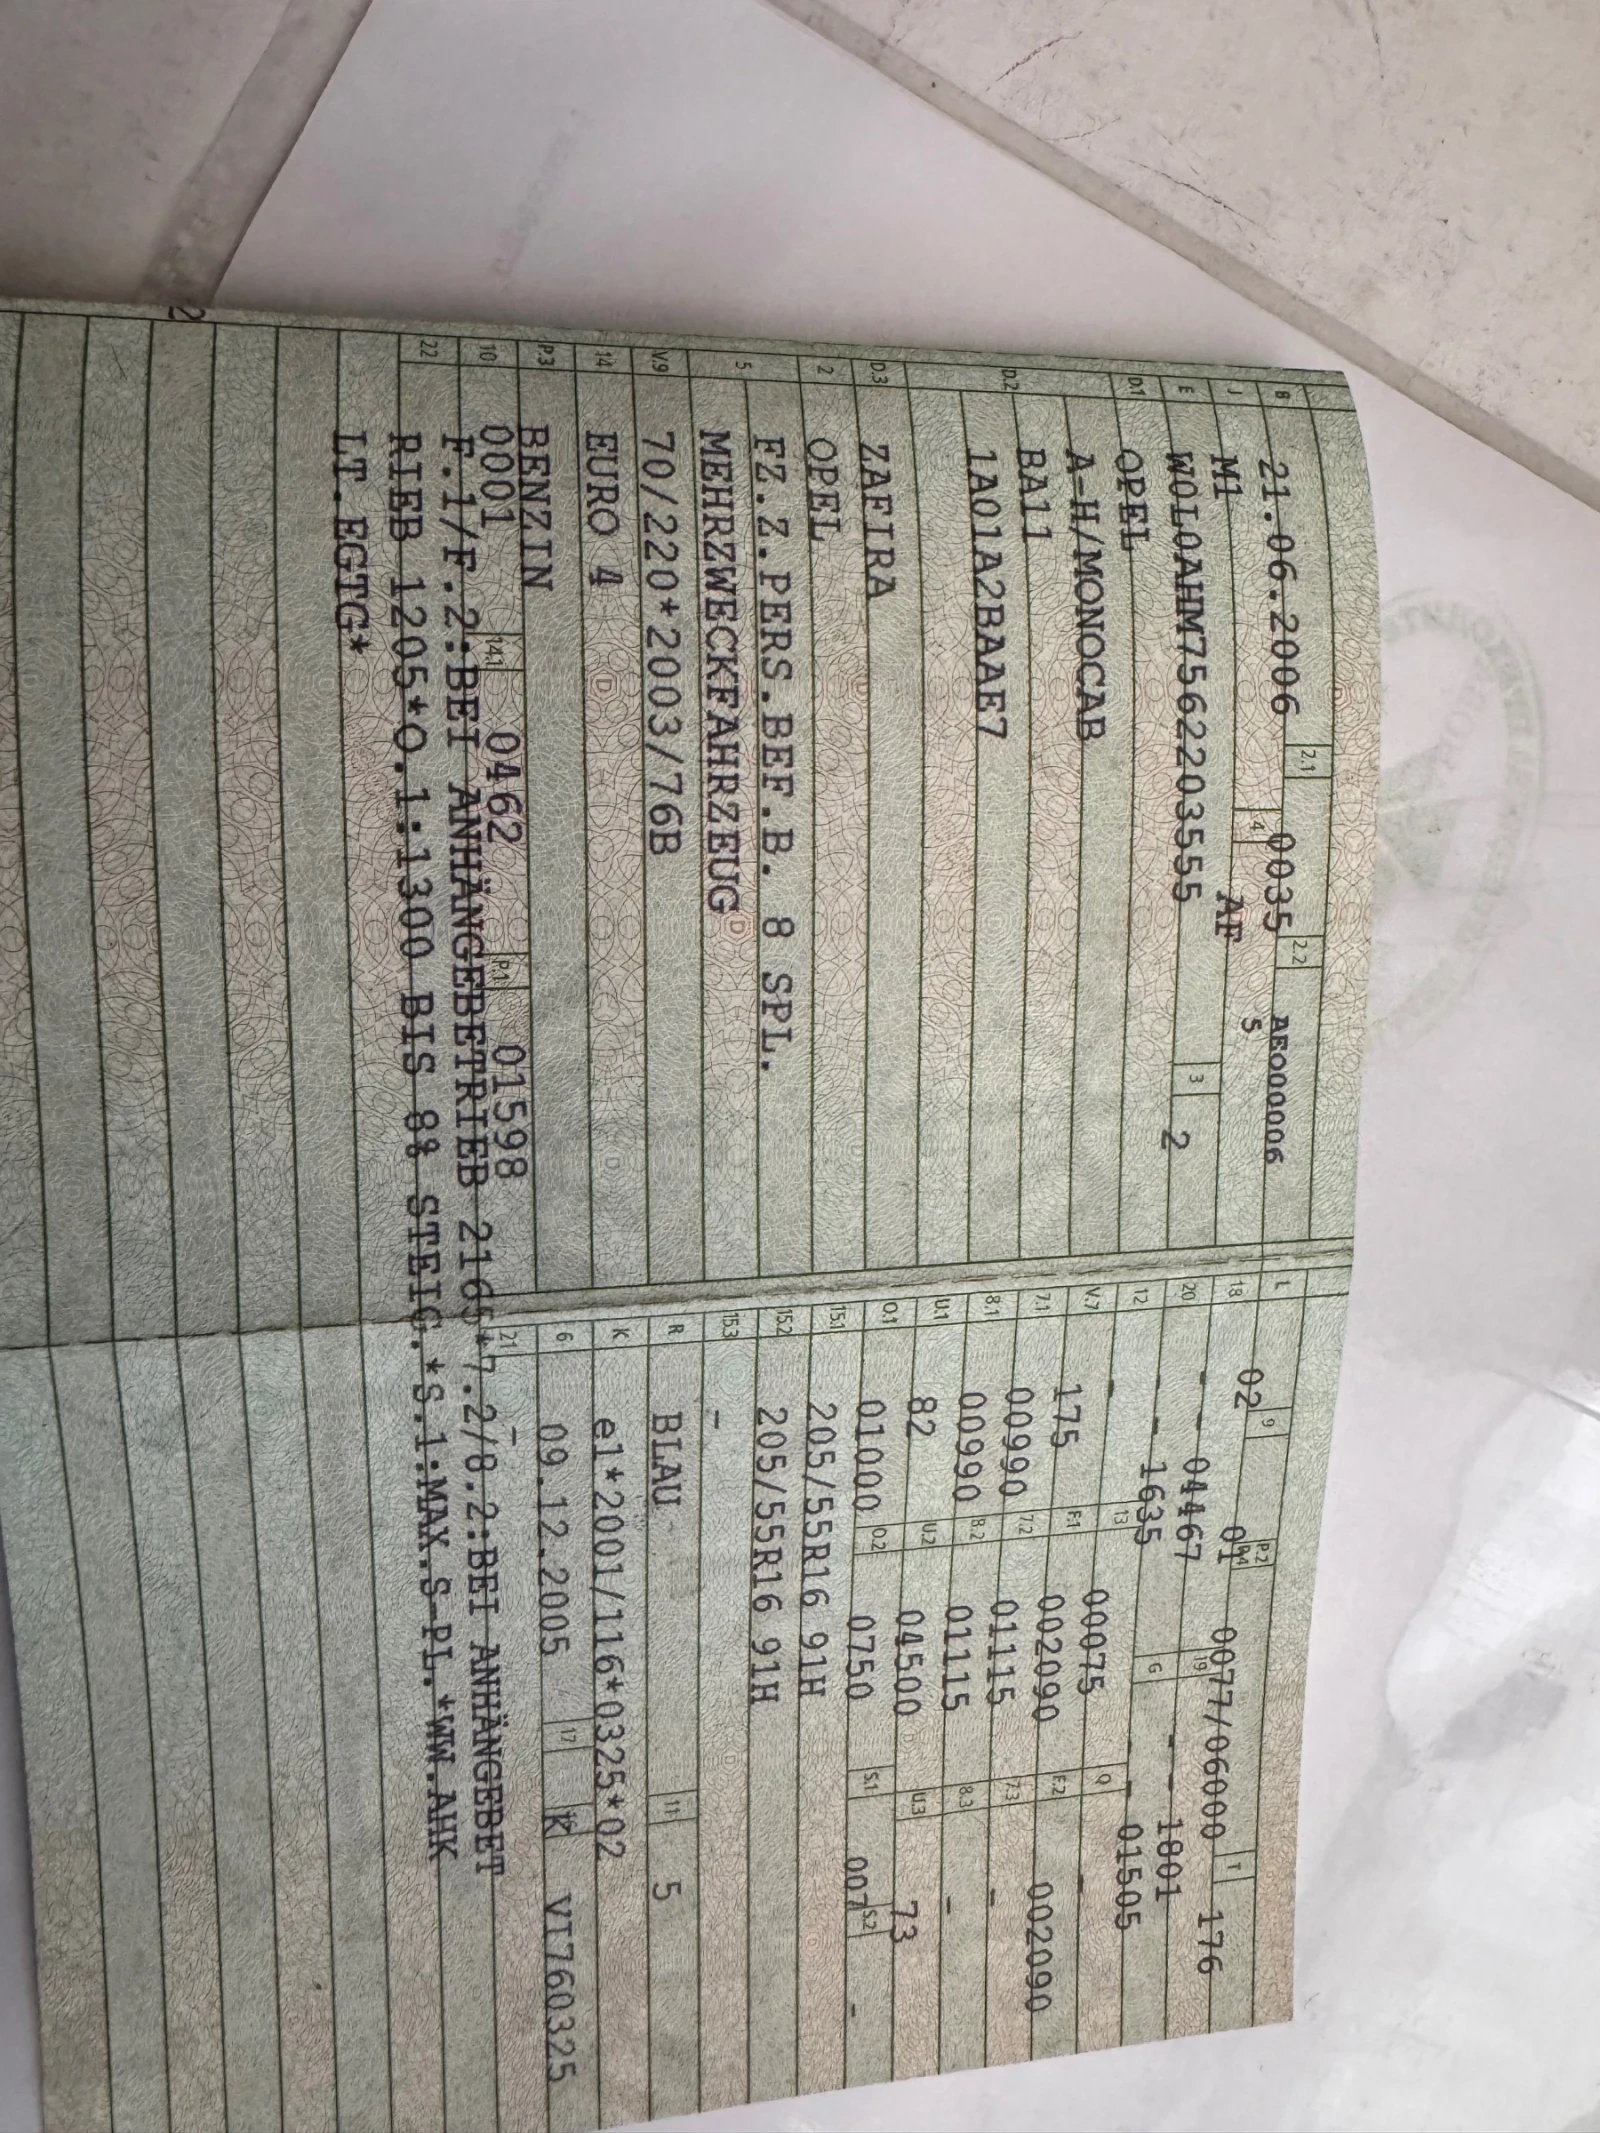 B 21.06.2006 2.1 0035 2.2 AEO000006
J M1 4 AF 5
E W0L0AHM7562203555 3 2
D.1 OPEL
D.2 A-H/MONOCAB
BA11
1A01A2BAAE7
D.3 ZAFIRA
2 OPEL
5 FZ.Z.PERS.BEF.B. 8 SPL.
MEHRZWECKFAHRZEUG
V.9 70/220*2003/76B
14 EURO 4
P.3 BENZIN
10 0001 14.1 0462 P.1 01598
L 02 9 - P.2 P.4 0077/06000 T 176
18 04467 19 1801
20 1635 G 01505
12 - 13 00075 Q -
V.7 175 F.1 002090 F.2 002090
7.1 00990 7.2 01115 7.3 -
8.1 00990 8.2 01115 8.3 -
U.1 82 U.2 04500 U.3 73
O.1 01000 O.2 0750 S.1 007 S.2 -
15.1 205/55R16 91H
15.2 205/55R16 91H
15.3 -
R BLAU 11 5
K e1*2001/116*0325*02
6 09.12.2005 17 K 16 VI760325
21 -
22 F.1/F.2:BEI ANHÄNGEBETRIEB 2165*7.2/8.2:BEI ANHÄNGEBET
RIEB 1205*O.1:1300 BIS 8% STEIG.*S.1:MAX.S-PL.*WW.AHK
LT.EGTG*